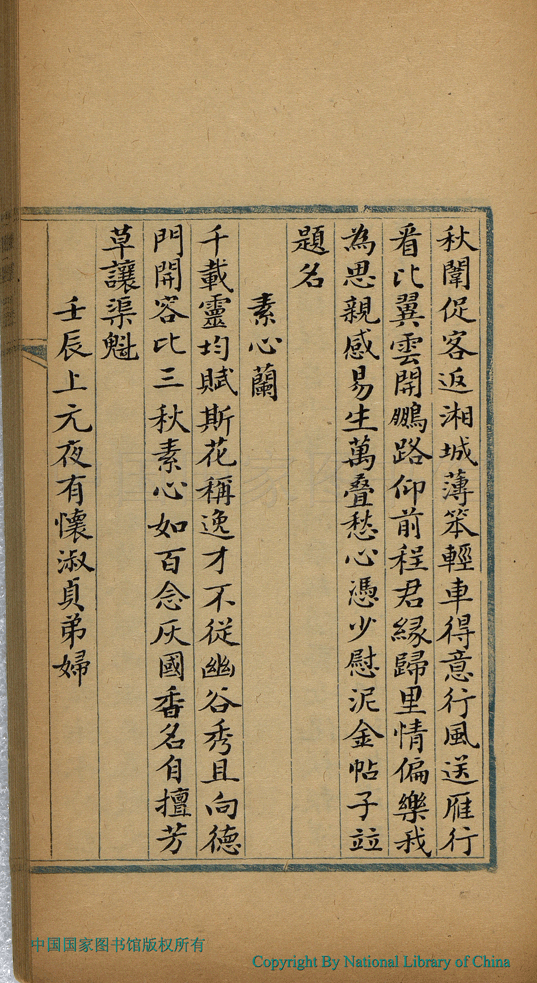 秋闈促客返湘城薄笨輕車得意行風送雁行
看比翼雲開鵬路仰前程君緣歸里情偏樂我
為思親感易生萬叠愁心憑少慰泥金帖子竝
題名
素心蘭
千載靈均賦斯花稱逸才不從幽谷秀且向德
門開容比三秋素心如百念灰國香名自擅芳
草讓渠魁
壬辰上元夜有懷淑貞弟婦
中国国家图书馆版权所有
Copyright By National Library of China